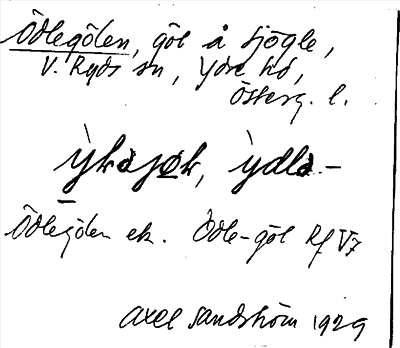 Ödlegölen, göl å Sjögle,
V. Ryds sn, Ydre hd,
Österg. l.
Ödlegölen ek. Ödle-göl Rf V7
Axel Sandström 1929